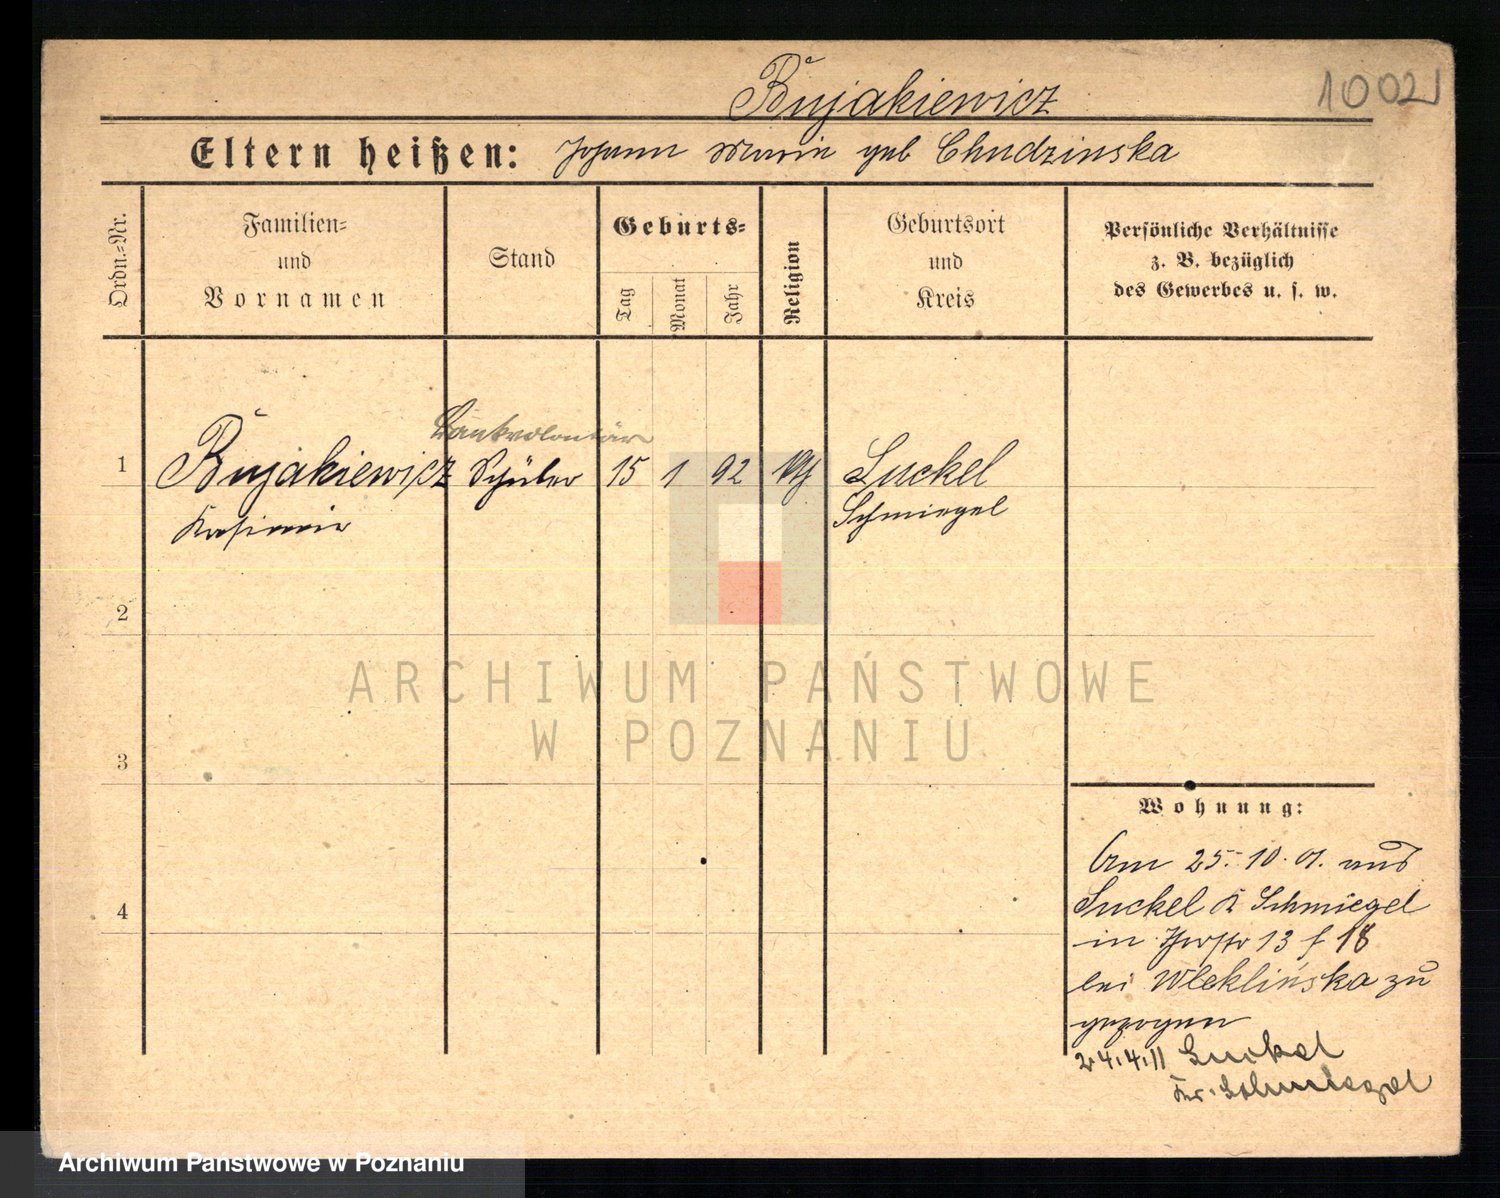 Bujakiewicz
1002
Eltern heißen: Johann Marie geb Chudzinska
Ordn.-Nr.
Familien-
und
Vornamen
Stand
Geburts-
Tag
Monat
Jahr
Religion
Geburtsort
und
Kreis
Persönliche Verhältnisse
z. B. bezüglich
des Gewerbes u. s. w.
Bankvolontär
1 Bujakiewicz Schüler 15 1 92 kth Luckel
Kasimir Schmiegel
2
ARCHIWUM PAŃSTWOWE
W POZNANIU
3
Wohnung:
Am 25.10.07. aus
Luckel K Schmiegel
in 13 18
bei Wleklińska zu
gezogen
24.4.11 Luckel
Kr. Schmiegel
4
Archiwum Państwowe w Poznaniu